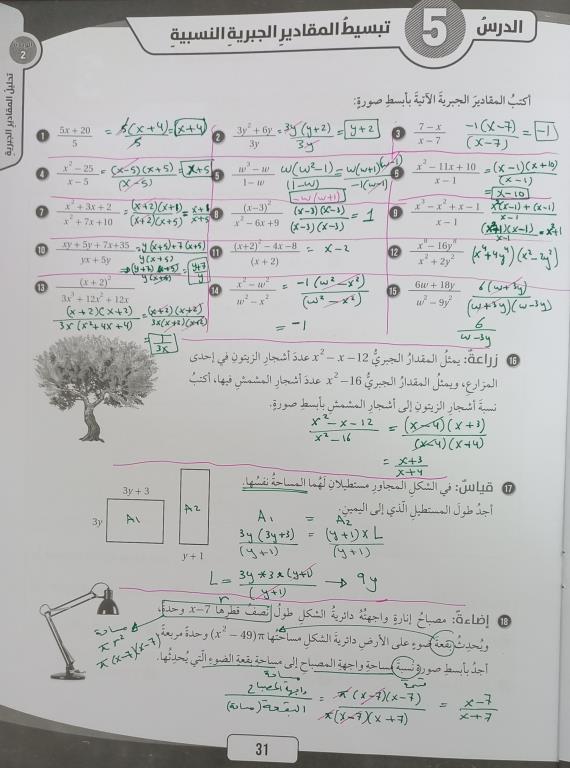 الدرسُ 5 تبسيطُ المقاديرِ الجبريةِ النسبيةِ
الوحدة 2
تحليلُ المقاديرِ الجبريةِ
أكتبُ المقاديرَ الجبريةَ الآتيةَ بأبسطِ صورةٍ:
1 (5x + 20)/5 = 5(x+4)/5 = (x+4)
2 (3y² + 6y)/3y = 3y(y+2)/3y = y+2
3 (7 − x)/(x − 7) = -1(x-7)/(x-7) = -1
4 (x² − 25)/(x − 5) = (x-5)(x+5)/(x-5) = x+5
5 (w³ − w)/(1 − w) w(w²-1)/(1-w) = w(w+1)(w-1)/-1(w-1)
-w(w+1)
6 (x² − 11x + 10)/(x − 1) = (x-1)(x+10)/(x-1)
= x-10
7 (x² + 3x + 2)/(x² + 7x + 10) = (x+2)(x+1)/(x+2)(x+5) = x+1/x+5
8 (x−3)²/(x² − 6x + 9) = (x-3)(x-3)/(x-3)(x-3) = 1
9 (x³ − x² + x − 1)/(x − 1) x²(x-1)+(x-1)/x-1
(x²+1)(x-1)/x-1 = x²+1
10 (xy + 5y + 7x + 35)/(yx + 5y) = y(x+5)+7(x+5)/y(x+5)
(y+7)(x+5)/y(x+5) = y+7/y
11 ((x+2)² − 4x − 8)/(x + 2) = x-2
12 (x⁸ − 16y⁸)/(x⁴ + 2y²) (x⁴+4y⁴)(x²-2y²)
13 (x + 2)²/(3x³ + 12x² + 12x)
(x+2)(x+2)/3x(x²+4x+4) = (x+2)(x+2)/3x(x+2)(x+2)
= 1/3x
14 (x² − w²)/(w² − x²) = -1(w²-x²)/(w²-x²)
= -1
15 (6w + 18y)/(w² − 9y²) 6(w+3y)/(w+3y)(w-3y)
6/w-3y
16 زراعةٌ: يمثلُ المقدارُ الجبريُّ x² − x − 12 عددَ أشجارِ الزيتونِ في إحدى
المزارعِ، ويمثلُ المقدارُ الجبريُّ x² − 16 عددَ أشجارِ المشمشِ فيها، أكتبُ
نسبةَ أشجارِ الزيتونِ إلى أشجارِ المشمشِ بأبسطِ صورةٍ.
x²-x-12/x²-16 = (x-4)(x+3)/(x-4)(x+4)
= x+3/x+4
17 قياسٌ: في الشكلِ المجاورِ مستطيلانِ لَهُما المساحةُ نفسُها.
أجدُ طولَ المستطيلِ الّذي إلى اليمينِ.
3y + 3
3y
A1
A2
y + 1
A₁ = A₂
3y(3y+3)/(y+1) = (y+1) x L/(y+1)
L = 3y*3(y+1)/(y+1) → 9y
18 إضاءةٌ: مصباحُ إنارةٍ واجهتُهُ دائريةُ الشكلِ طولُ نصفُ قطرِها x−7 وحدةً،
r
ويُحدِثُ بقعةَ ضوءٍ على الأرضِ دائريةَ الشكلِ مساحتُها π(x² − 49) وحدةً مربعةً
أجدُ بأبسطِ صورةٍ نسبةَ مساحةِ واجهةِ المصباحِ إلى مساحةِ بقعةِ الضوءِ الّتي يُحدِثُها.
مساحة
πr²
π(x-7)(x-7)
مساحة
واجهة المصباح/البقعة (مساحة) = π(x-7)(x-7)/π(x-7)(x+7) = x-7/x+7
31